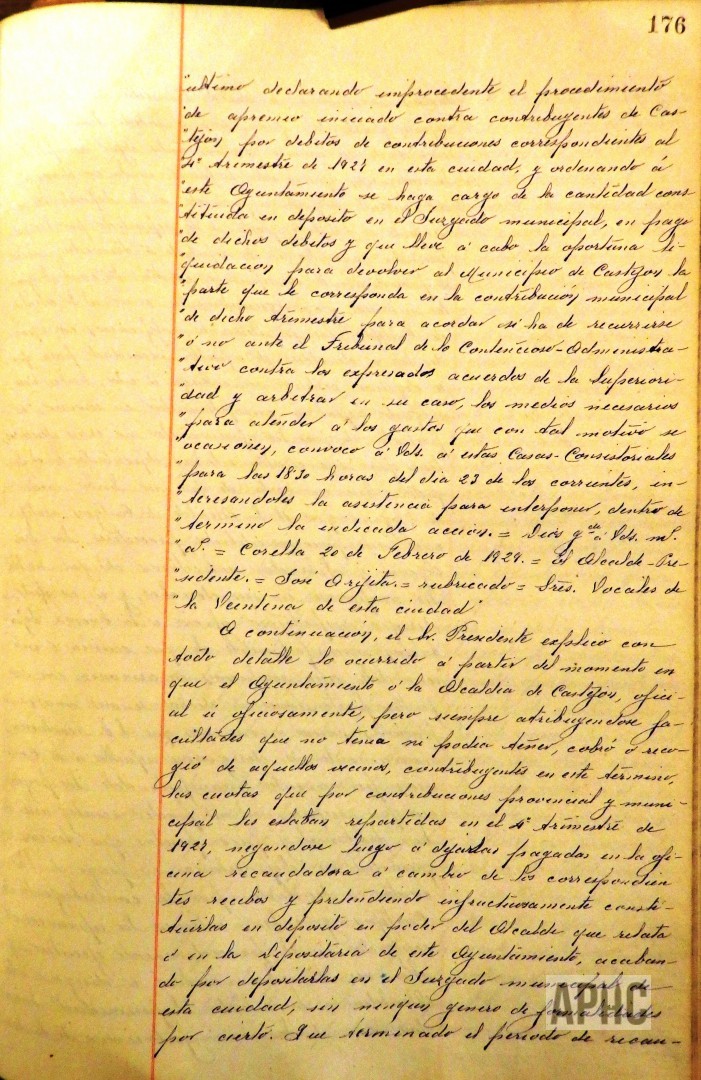 176
"ultimo declarando improcedente el procedimiento
"de apremio iniciado contra contribuyentes de Cas-
"tejon, por debitos de contribuciones correspondientes al
"4º trimestre de 1927 en esta ciudad, y ordenando á
"este Ayuntamiento se haga cargo de la cantidad cons-
"tituida en deposito en el Juzgado municipal, en pago
"de dichos debitos y que lleve á cabo la oportuna li-
"quidacion, para devolver al Municipio de Castejon la
"parte que le corresponda en la contribución, municipal
"de dicho trimestre para acordar si ha de recurrirse
"ó no ante el Tribunal de lo Contencioso-Administra-
"tivo contra los expresados acuerdos de la Superiori-
"dad y arbitrar en su caso, los medios necesarios
"para atender á los gastos que con tal motivo se
"ocasionen, convoco á Vds. á estas Casas-Consistoriales
"para las 18'30 horas del dia 23 de los corrientes, in-
"teresandoles la asistencia para interponer, dentro de
"termino la indicada accion. = Dios g.de á Vds. m.s
"a.s = Corella 20 de Febrero de 1929. = El Alcalde-Pre-
"sidente. = José Arijita. = rubricado = Sres. Vocales de
"la Veintena de esta ciudad"
A continuación, el Sr. Presidente explicó con
todo detalle lo ocurrido á partir del momento en
que el Ayuntamiento ó la Alcaldia de Castejon, ofici-
al ú oficiosamente, pero siempre atribuyendose fa-
cultades que no tenia ni podia tener, cobró ó reco-
gió de aquellos vecinos, contribuyentes en este término,
las cuotas que por contribuciones provincial y muni-
cipal les estaban repartidas en el 4º trimestre de
1927, negandose luego á dejarlas pagadas en la ofi-
cina recaudadora á cambio de los correspondien
tes recibos y pretendiendo infructuosamente consti-
tuirlas en deposito en poder del Alcalde que relata
ó en la Depositaria de este Ayuntamiento, acaban-
do por depositarlas en el Juzgado municipal de
esta ciudad, sin ningun genero de formalidades
por cierto. Que terminado el periodo de recau-
APHC